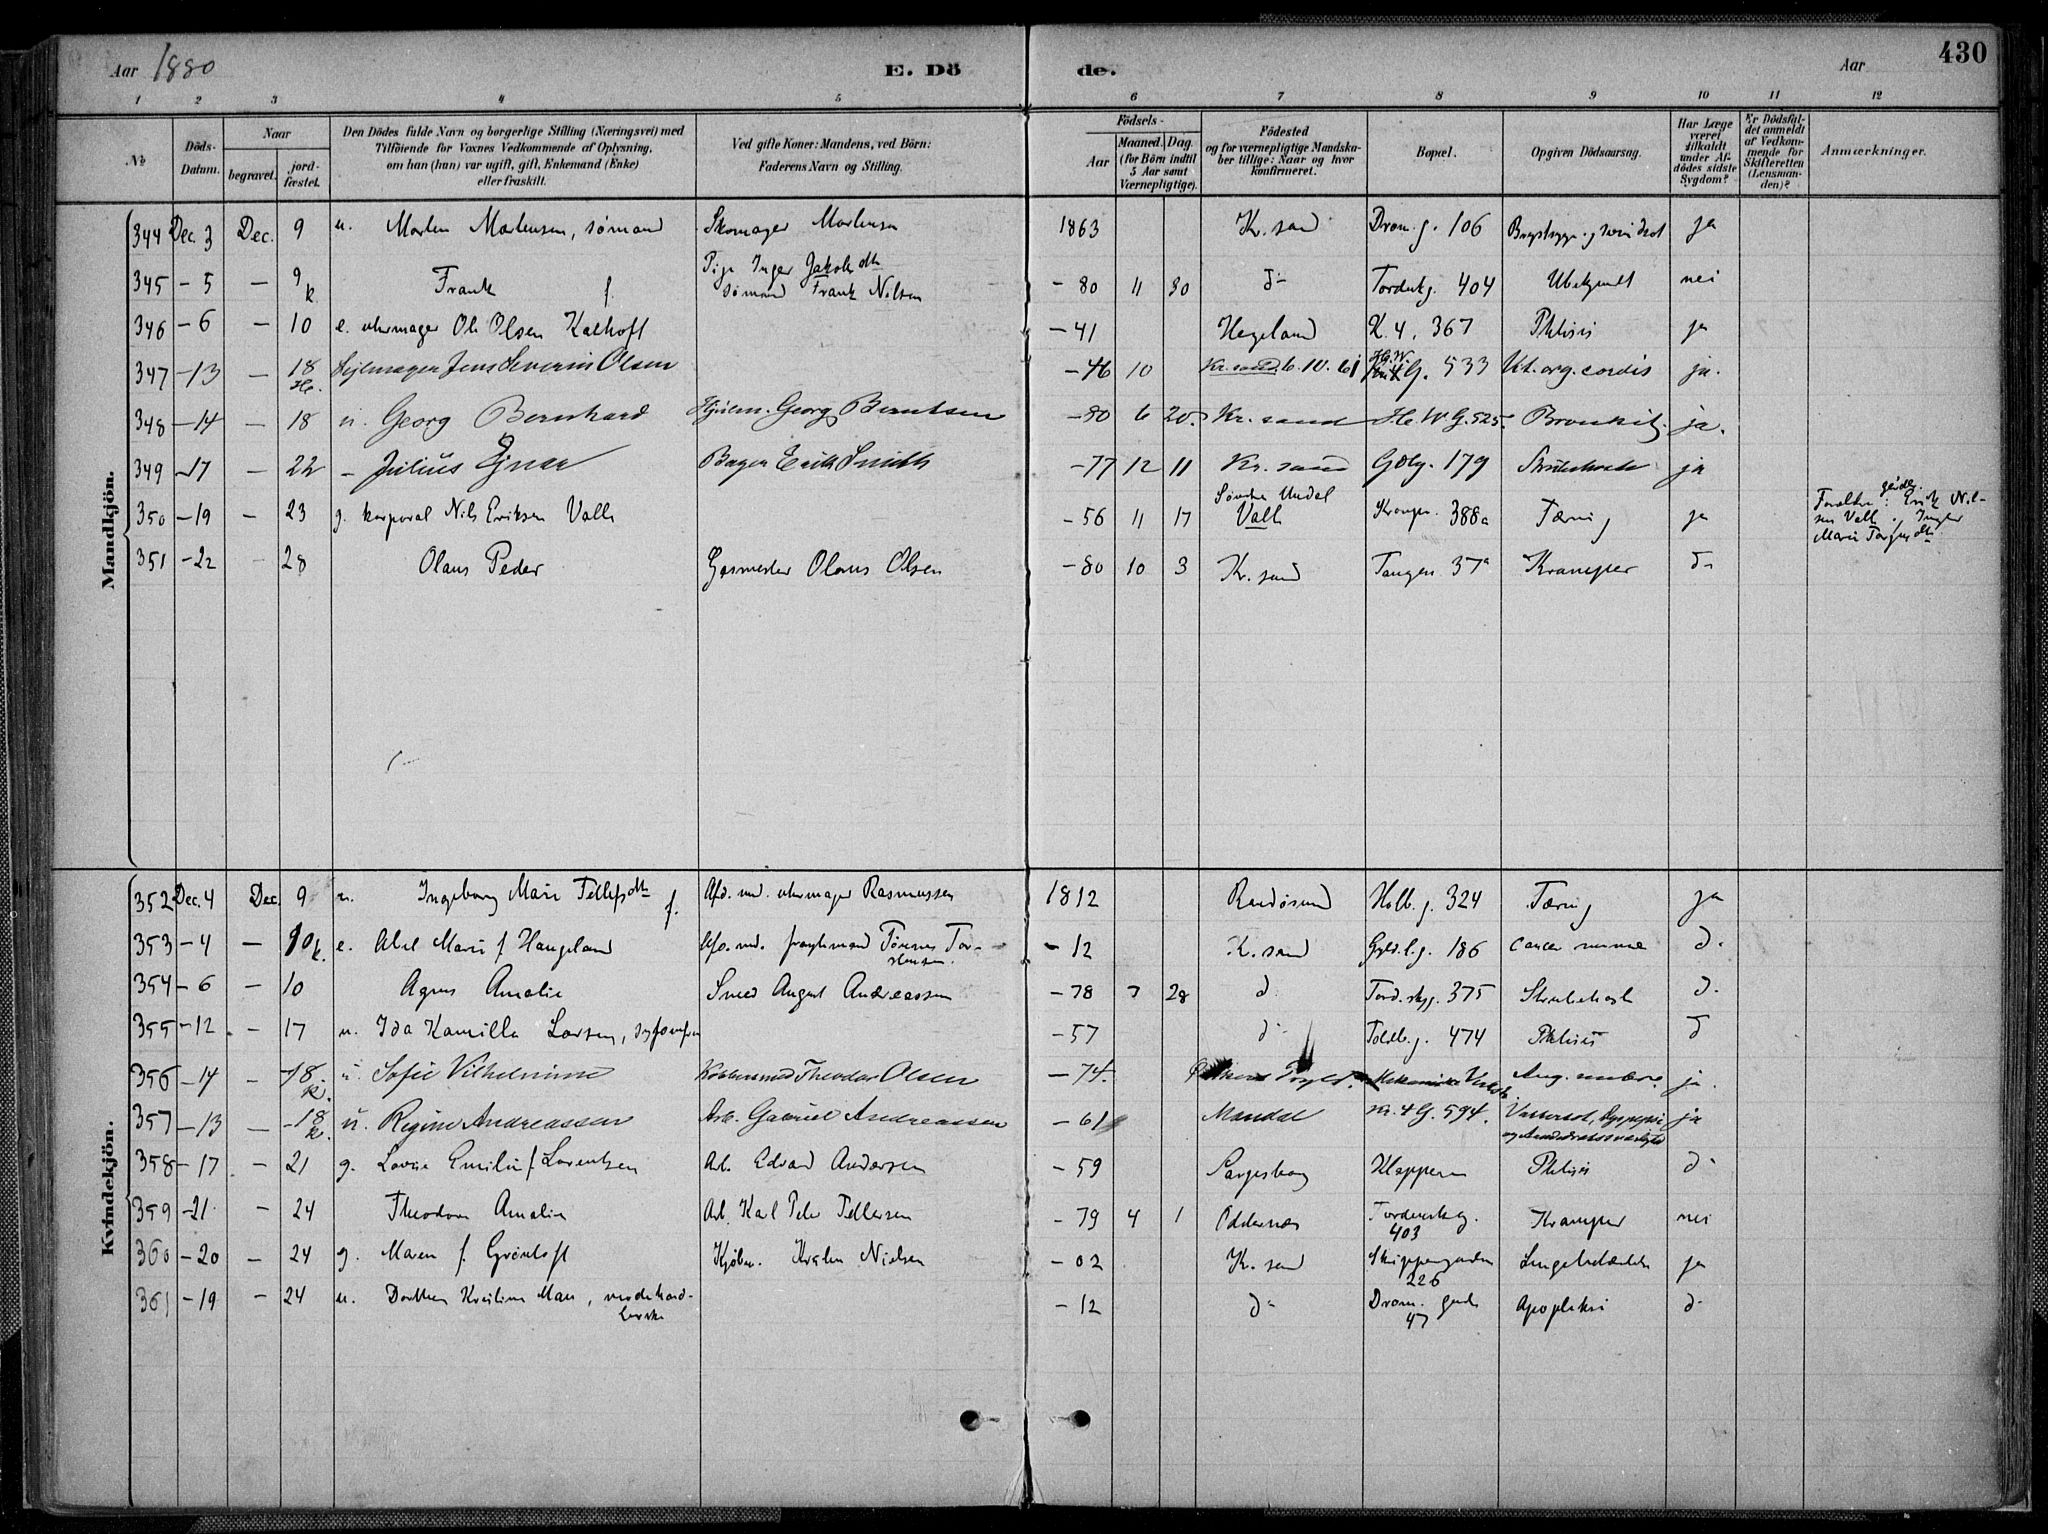 Aar 1880
E. Dö
de.
Aar
430
1 2 3 4 5 6 7 8 9 10 11 12
No
Döds-Datum.
Naar
begravet.
jordfæstet.
Den Dödes fulde Navn og borgerlige Stilling (Næringsvei) med
Tilföiende for Voxnes Vedkommende af Oplysning,
om han (hun) var ugift, gift, Enkemand (Enke)
eller fraskilt.
Ved gifte Koner: Mandens, ved Börn:
Faderens Navn og Stilling.
Födsels-
Aar
Maaned. Dag.
(for Börn indtil
5 Aar samt
Værnepligtige).
Födested
og for værnepligtige Mandska-
ber tillige: Naar og hvor
konfirmeret.
Bopæl.
Opgiven Dödsaarsag.
Har Læge
været
tilkaldt
under Af-
dödes sidste
Sygdom?
Er Dödsfal-
det anmeldt
af Vedkom-
mende for
Skifteretten
(Lensman-
den)?
Anmærkninger.
Mandkjön.
344 Dec. 3 Dec. 9 u. Morten Mortensen, sømand Skomager Mortensen 1863 Kr.sand Dron.g. 106 ja
345 - 5 - 9 k Frank f. Pige Inger Jakobsdtr
sømand Frank Nilsen - 80 11 30 d- Tordenskg. 404 Ubekjendt nei
346 - 6 - 10 e. uhrmager Ole Olsen Kalhoft - 41 Hegeland K. 4. 367 Phtisis ja
347 - 13 - 18 Seilmager Jens Severin Olsen - 46 10 Kr.sand 6.10.61 G. 533 Vit. org. cordis ja.
348 - 14 - 18 u. Georg Bernhard Hjulm. Georg Berntsen - 80 6 20. Kr.sand H.W.G. 525. Bronkit. ja.
349 - 17 - 22 - Julius Ejnar Bager Erik Smith - 77 12 11 Kr.sand Gglg. 179 Strubehoste ja
350 - 19 - 23 g. korporal Nils Eriksen Valle - 56 11 17 Søndre Undal
Valle Kronpr. 388a Tæring ja Forældre: Erik Nil-
sen Valle
351 - 22 - 28 Olaus Peder Gasmester Olaus Olsen - 80 10 3 Kr.sand Tangen 37a Kramper d-
Kvindekjön.
352 Dec. 4 Dec. 9 u. Ingeborg Marie Tellefsdtr f. Afd. md. uhrmager Rasmussen 1812 Randøsund Holb.g. 324 Tæring ja
353 - 4 - 10 k. e. Abel Marie f. Haugeland Afd. md. Tønnes Tor-
stensen. - 12 K.sand Gyld.l.g. 186 Cancer mamæ d-
354 - 6 - 10 Agnes Amalie Smed August Andreassen - 78 7 28 d. Tord.skg. 375 Strubehoste d-
355 - 12. - 17 u. Ida Kamilla Larsen, syjomfru - 57 d- Toldb.g. 474 Phtisis d
356 - 14 - 18 k. u. Sofie Vilhelmine Kobbersmed Theodor Olsen - 74. Mekaniske Verksted ja.
357 - 13 - 18 k. u. Regine Andreassen Arb. Gabriel Andreassen - 61 Mandal Kr.4 G. 594. Vattersot, Dyspepsi ja
358 - 17. - 21 g. Lovise Emilie f. Lorentzen Arb. Edvard Andersen - 59 Sarpsborg Kloppen Phtisis d-
359 - 21. - 24 Theodora Amalie Arb. Karl Peter Pettersen - 79 4 1 Oddernes Tordenskg.
403 Kramper nei
360 - 20 - 24 g. Maren f. Grønloft Kjøbm. Kristen Nielsen - 02 K.sand Skippergaden
226 Lungebetændelse ja
361 - 19 - 24 u. Dorthea Kristine Mau, modehand-
lerske - 12 d- Dron. gade
47 Apoplexi d-